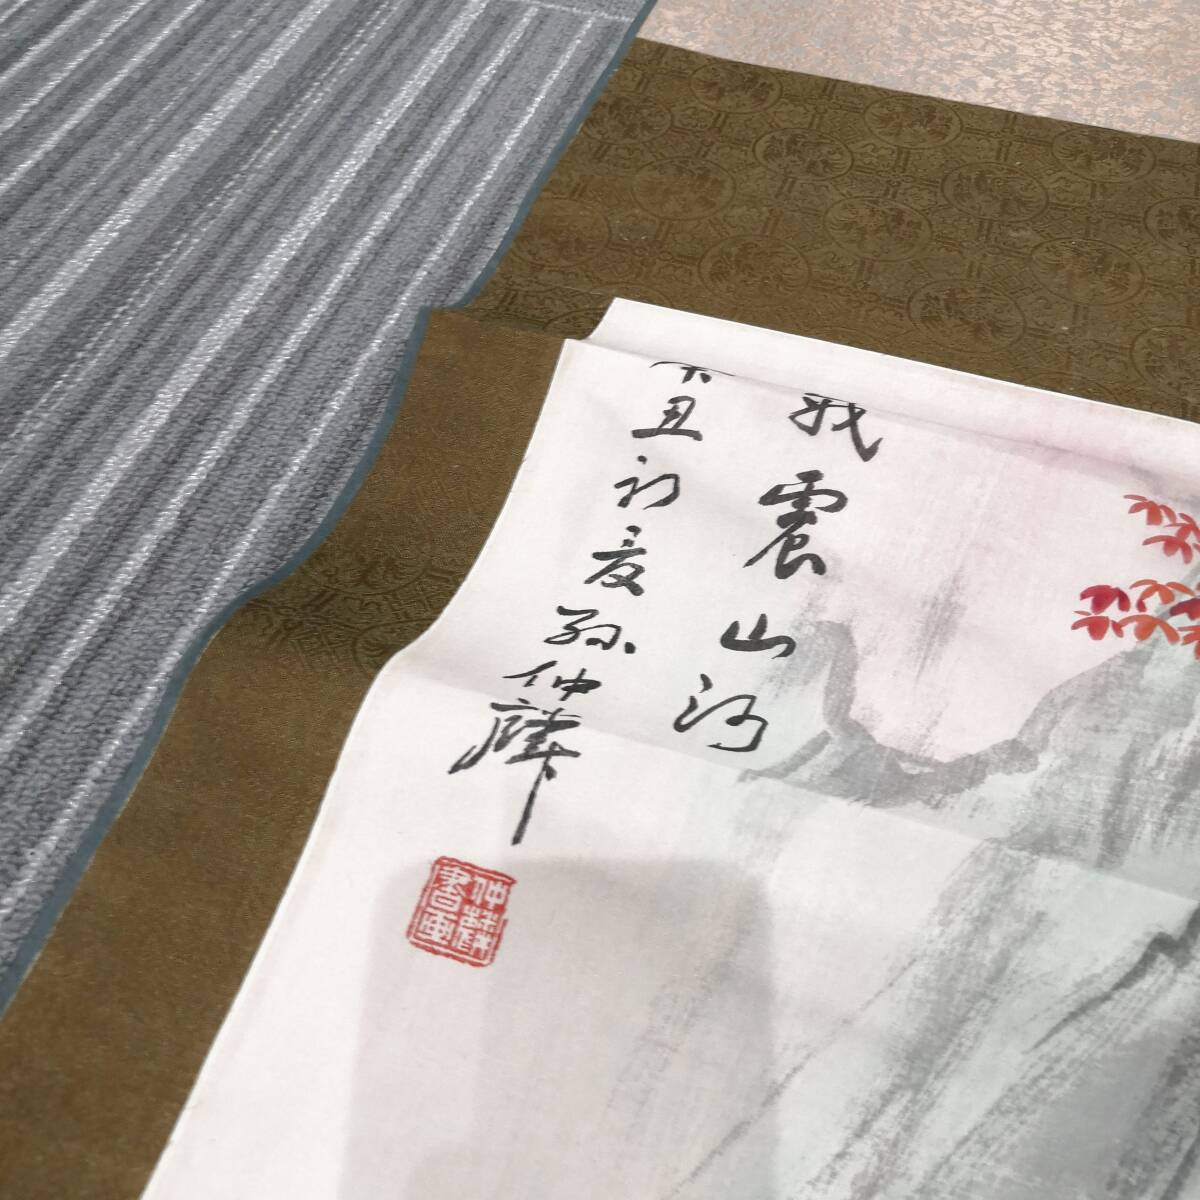 威震山河
癸丑初夏孫仲麟
仲麟
書畫